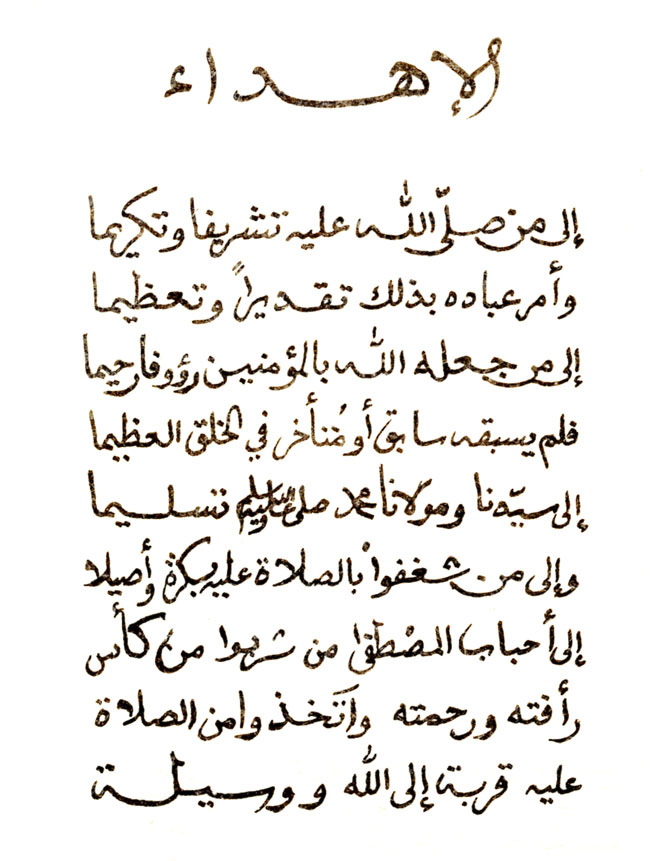 الإهداء
إلى من صلّى الله عليه تشريفا وتكريما
وأمر عباده بذلك تقديراً وتعظيما
إلى من جعله الله بالمؤمنين رؤوفا رحيما
فلم يسبقه سابق أو مُتأخر في الخلق العظيما
إلى سيّدنا ومولانا محمد صلى الله عليه وسلم تسليما
وإلى من شغفوا بالصلاة عليه بكرة وأصيلا
إلى أحباب المصطفى من شربوا من كأس
رأفته ورحمته واتَخذوا من الصلاة
عليه قربة إلى الله ووسيلة